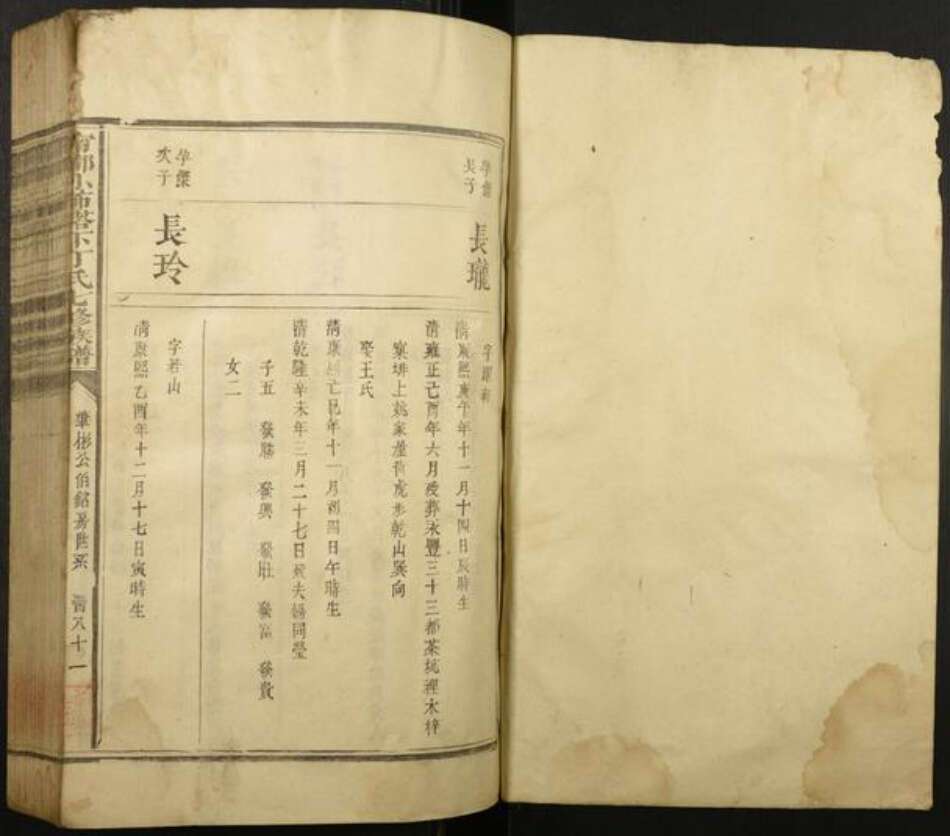 孕傑
長子
長瓏
字
清康熙庚午年十一月十四日辰時生
清雍正己酉年六月歿葬永豐三十三都茶坑裡水梓
窠排上姚家屋背虎形乾山巽向
娶王氏
清康熙丁巳年十一月初四日午時生
清乾隆辛未年三月二十七日歿夫婦同塋
子五 發勝 發興 發壯 發富 發貴
女二
孕傑
次子
長玲
字若山
清康熙乙酉年十二月十七日寅時生
都小布塔下丁氏七修族譜
公伯銘房世系
八十一